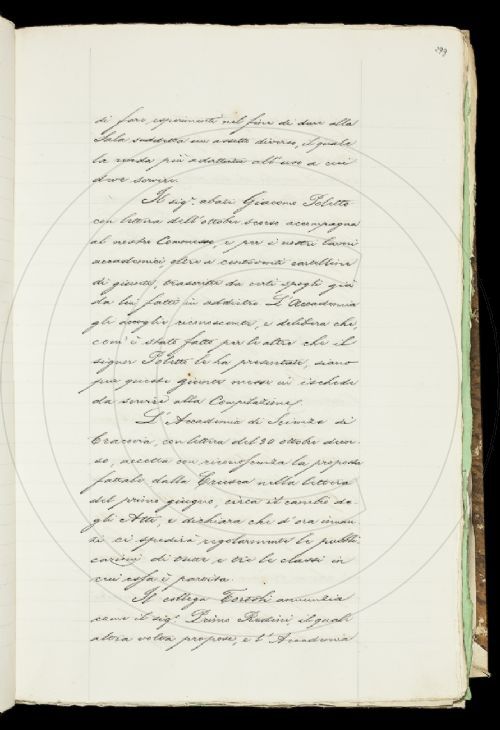 299
di fare esperimenti nel fine di dare alla
Sala suddetta un assetto diverso, il quale
la renda più adattata all'uso a cui
deve servire.
Il sig.r abate Giacomo Poletto
con lettera dell'ottobre scorso accompagna
al nostro e per i nostri lavori
accademici, oltre a centoventi cartelline
di giunte, trascritte da certi spogli già
da lui fatti in addietro. L'Accademia
gli accoglie riconoscente, e delibera che,
com'è stato fatto per le altre che il
signor Poletto le ha presentate, siano
pur queste giunte messe in ischede
da servire alla Compilazione.
L'Accademia di Scienze di
Cracovia, con lettera del 20 ottobre decor-
so, accetta con riconoscenza la proposta
fattale dalla Crusca nella lettera
del primo giugno, circa il cambio de-
gli Atti, e dichiara che d'ora innan-
zi ci spedirà regolarmente le pubbli-
cazioni di tutte e tre le classi in
cui essa è partita.
Il collega Tortoli annunzia
come il sig.r Primo il quale
altra volta propose, e l'Accademia